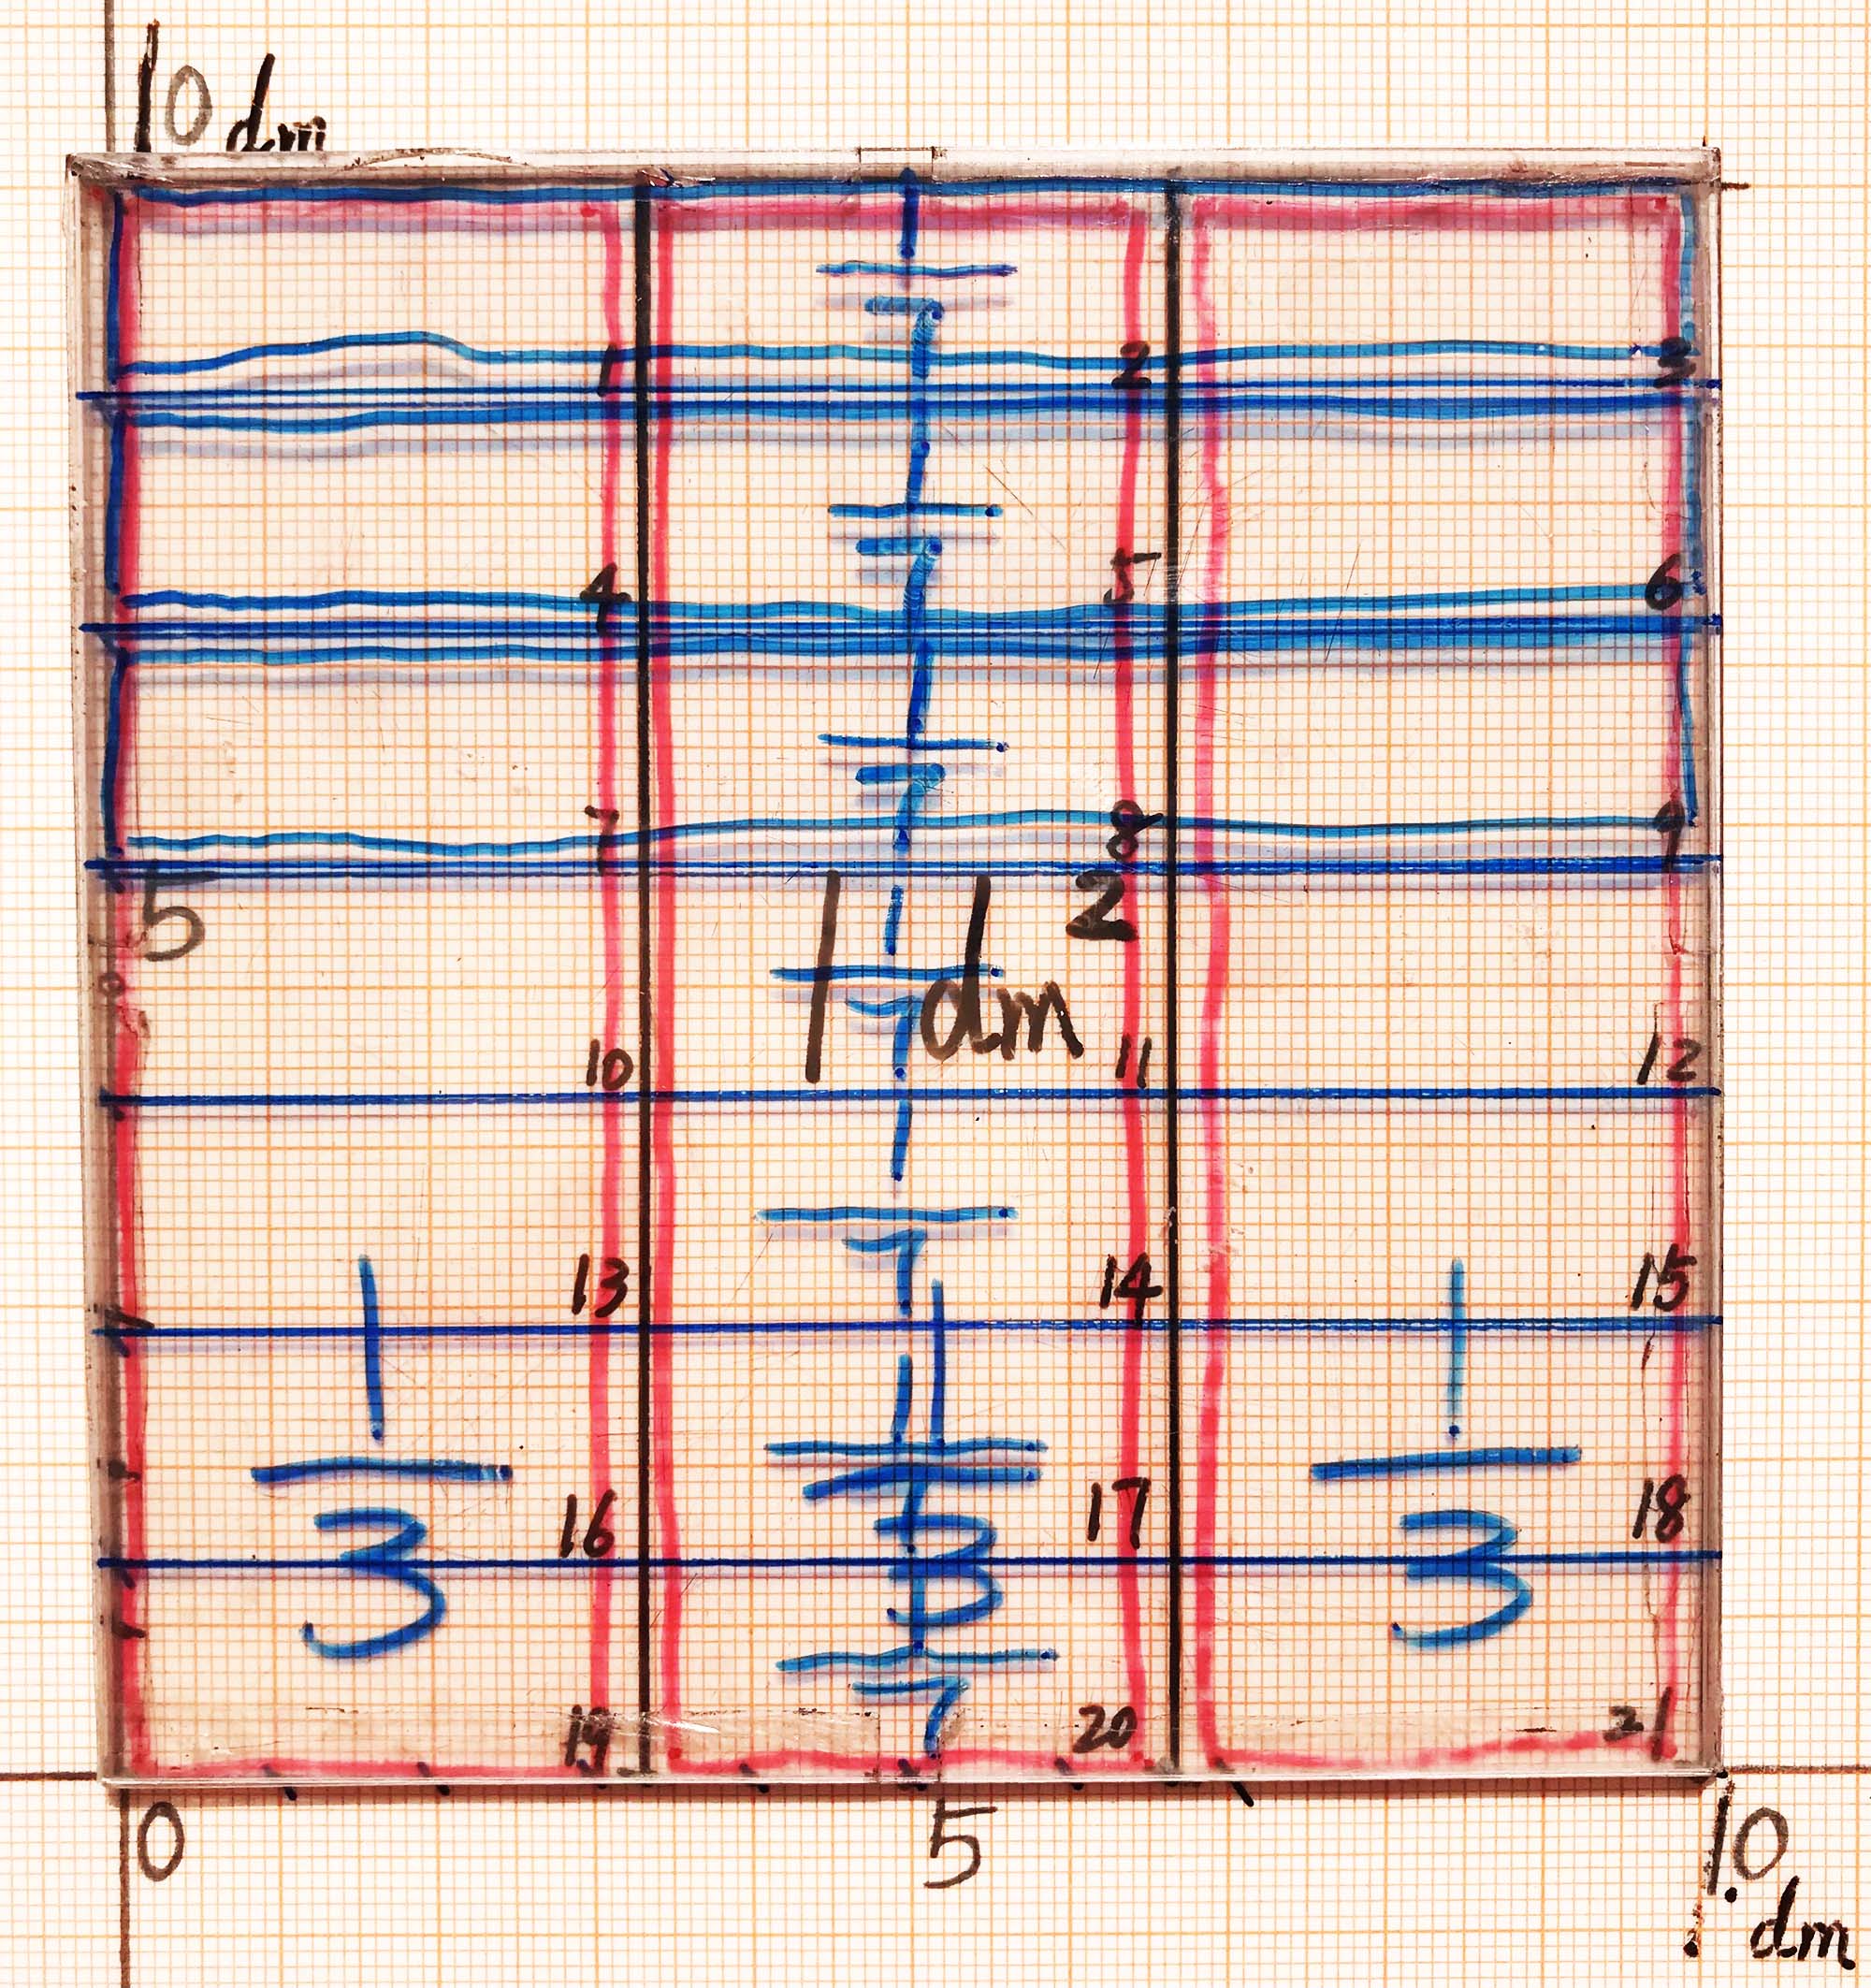 10 dm
1
7
1 2 3
1
7
4 5 6
1
7
7 8 9
5
1 dm 2
1
7
10 11 12
1
7
13 14 15
1 1 1
3 3 3
1
7
16 17 18
1
7
19 20 21
0 5 10
dm